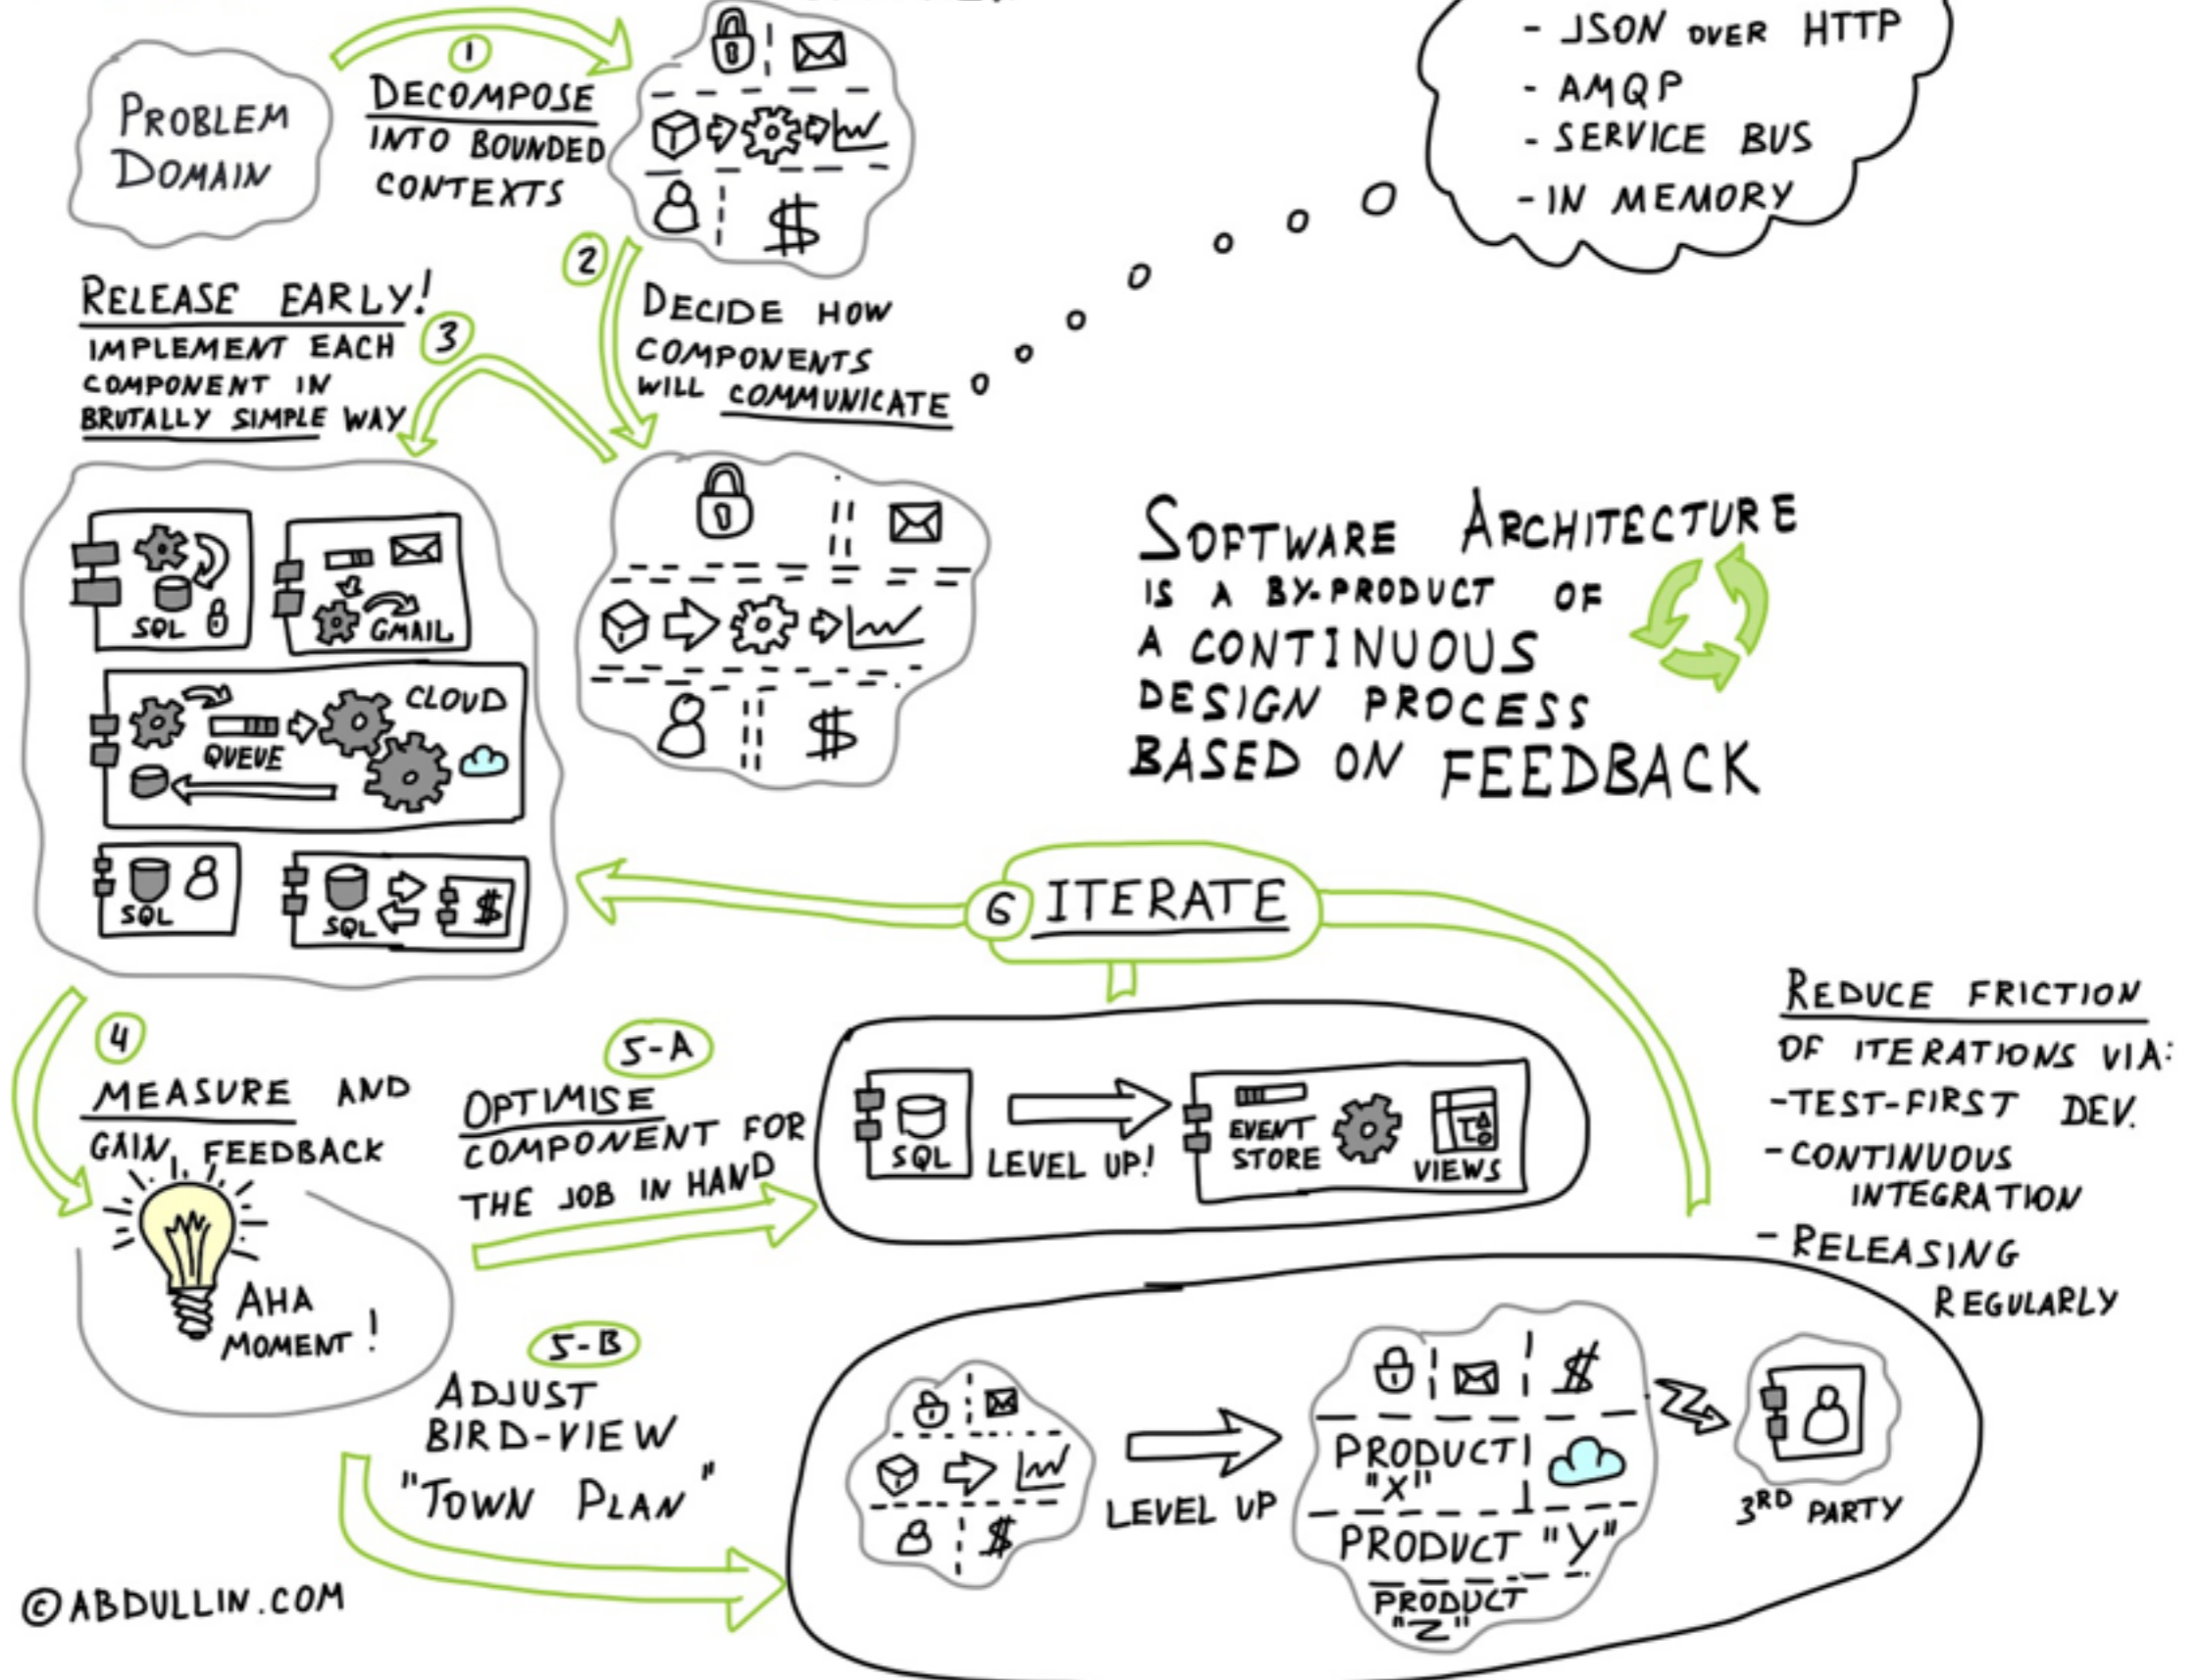 PROBLEM
DOMAIN
1
DECOMPOSE
INTO BOUNDED
CONTEXTS
$
- JSON OVER HTTP
- AMQP
- SERVICE BUS
- IN MEMORY
2
DECIDE HOW
COMPONENTS
WILL COMMUNICATE
RELEASE EARLY!
3
IMPLEMENT EACH
COMPONENT IN
BRUTALLY SIMPLE WAY
SQL
GMAIL
CLOUD
QUEUE
SQL
SQL
$
$
SOFTWARE ARCHITECTURE
IS A BY-PRODUCT OF
A CONTINUOUS
DESIGN PROCESS
BASED ON FEEDBACK
6 ITERATE
4
MEASURE AND
GAIN FEEDBACK
AHA
MOMENT!
5-A
OPTIMISE
COMPONENT FOR
THE JOB IN HAND
SQL
LEVEL UP!
EVENT
STORE
VIEWS
REDUCE FRICTION
OF ITERATIONS VIA:
-TEST-FIRST DEV.
-CONTINUOUS
INTEGRATION
- RELEASING
REGULARLY
5-B
ADJUST
BIRD-VIEW
"TOWN PLAN"
$
LEVEL UP
$
PRODUCT
"X"
PRODUCT "Y"
PRODUCT
"Z"
3RD PARTY
©ABDULLIN.COM